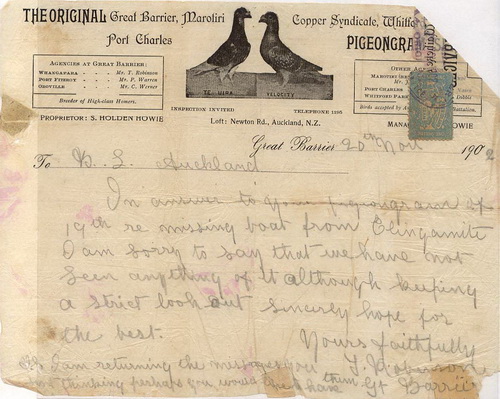 THE ORIGINAL Great Barrier, Marotiri Copper Syndicate,
Port Charles PIGEONGRA
AGENCIES AT GREAT BARRIER:
WHANGAPARA - Mr. T. Robinson
PORT FITZROY - Mr. P. Warren
OROVILLE - Mr. C. Werner
Breeder of High-class Homers.
PROPRIETOR: S. HOLDEN HOWIE
TE HIRA VELOCITY
INSPECTION INVITED TELEPHONE
Loft: Newton Rd., Auckland, N.Z.
OTHER
MAROTIRI
PORT CHARLES
Birds accepted by
MANA OWIE
Great Barrier 20th Nov 190
To Auckland
In answer to your pigeongram of
19th re missing boat from Elingamite
I am sorry to say that we have not
seen anything of it although keeping
a strict look out sincerely hope for
the best. Yours faithfully
I am returning the messages you T. Robinson
thinking perhaps you would have them Gt Barrier